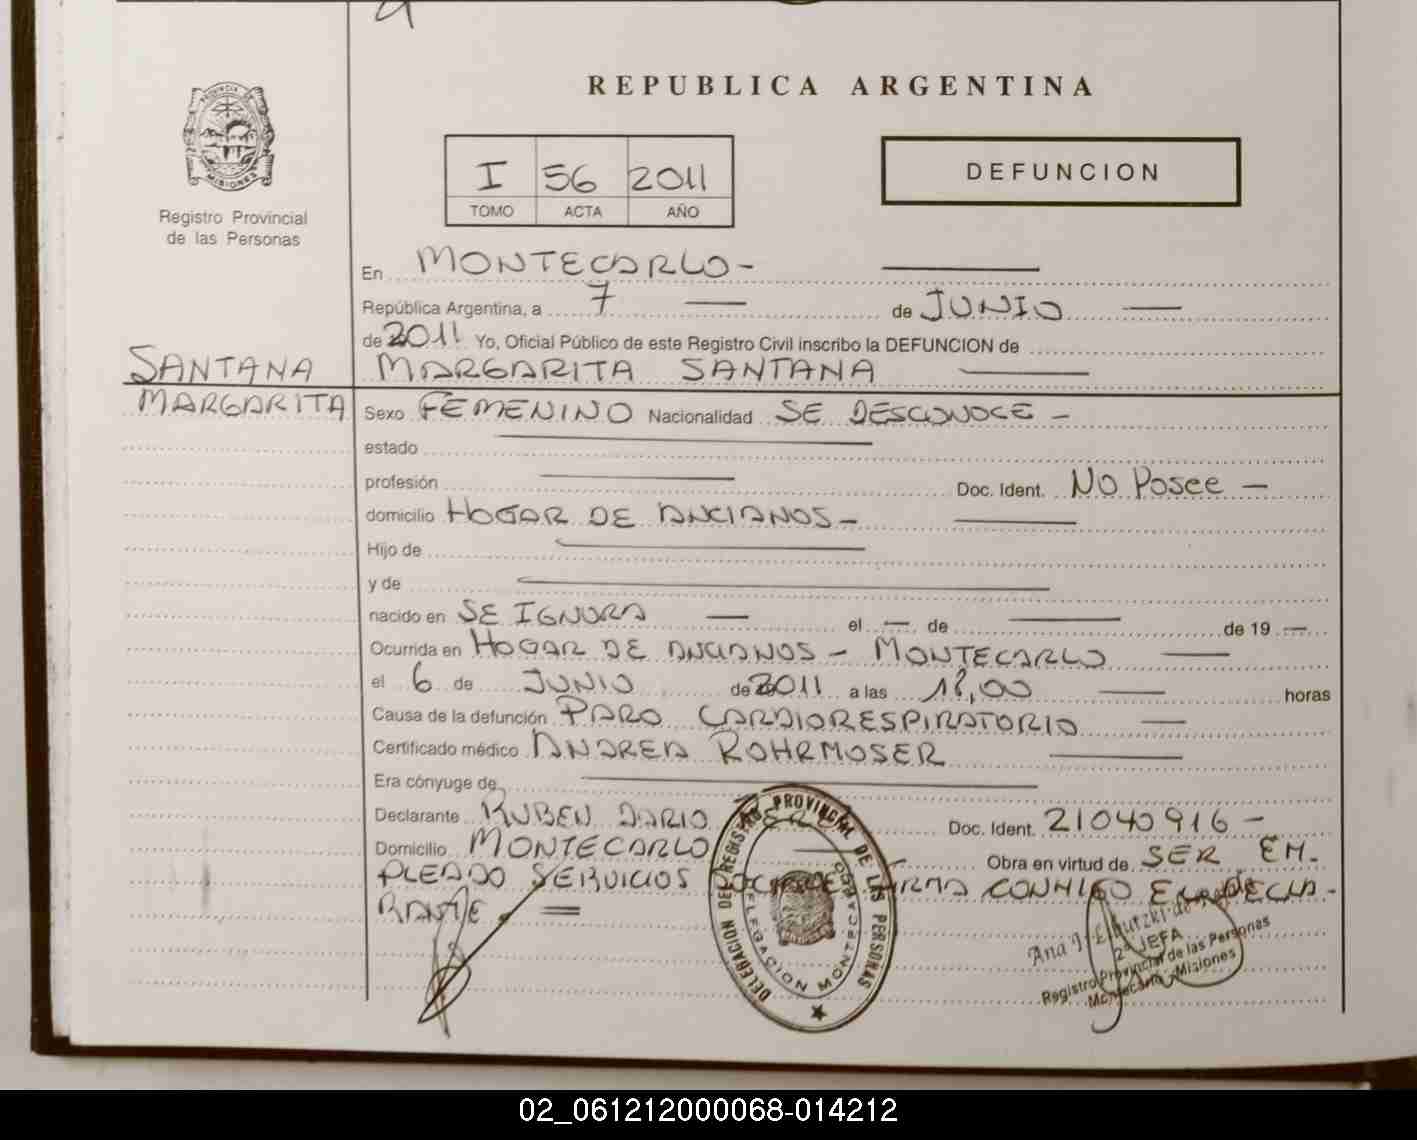 REPUBLICA ARGENTINA
PROVINCIA DE
MISIONES
Registro Provincial
de las Personas
I 56 2011
TOMO ACTA AÑO
DEFUNCION
En MONTECARLO-
República Argentina, a 7 de JUNIO
de 2011 Yo, Oficial Público de este Registro Civil inscribo la DEFUNCION de
SANTANA MARGARITA SANTANA
MARGARITA Sexo FEMENINO Nacionalidad SE DESCONOCE -
estado
profesión Doc. Ident. NO Posee -
domicilio HOGAR DE ANCIANOS -
Hijo de
y de
nacido en SE IGNORA el — de de 19 —
Ocurrida en HOGAR DE ANCIANOS - MONTECARLO
el 6 de JUNIO de 2011 a las 18,00 horas
Causa de la defunción PARO CARDIORESPIRATORIO
Certificado médico ANDREA ROHRMOSER
Era cónyuge de
Declarante RUBEN DARIO Doc. Ident. 21040916 -
Domicilio MONTECARLO Obra en virtud de SER EM-
PLEADO SERVICIOS FIRMA CONMIGO EL DECLA-
RANTE.
DELEGACION DEL REGISTRO PROVINCIAL DE LAS PERSONAS
DELEGACION MONTECARLO
Ana
2ª JEFA
Registro Provincial de las Personas
Montecarlo - Misiones
02_061212000068-014212